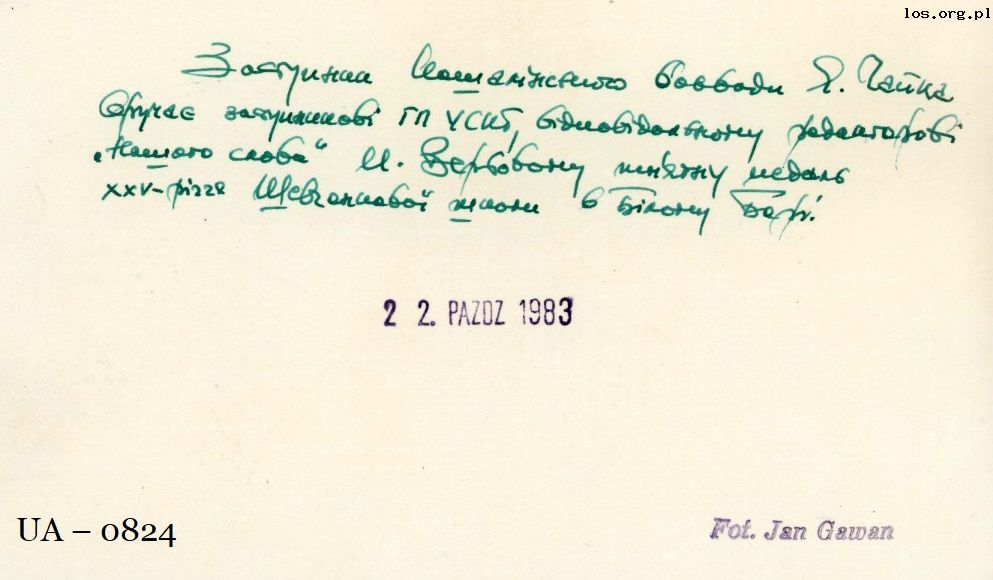 los.org.pl
Заступник Кошалінського воєводи Я. Чапка
вручає заступникові ГП УСКТ, відповідальному редакторові
„Нашого слова" М. Вербовому пам'ятну медаль
XXV-річчя Шевченкової школи в Білому Борі.
2 2. PAZDZ 1983
UA – 0824
Fot. Jan Gawan